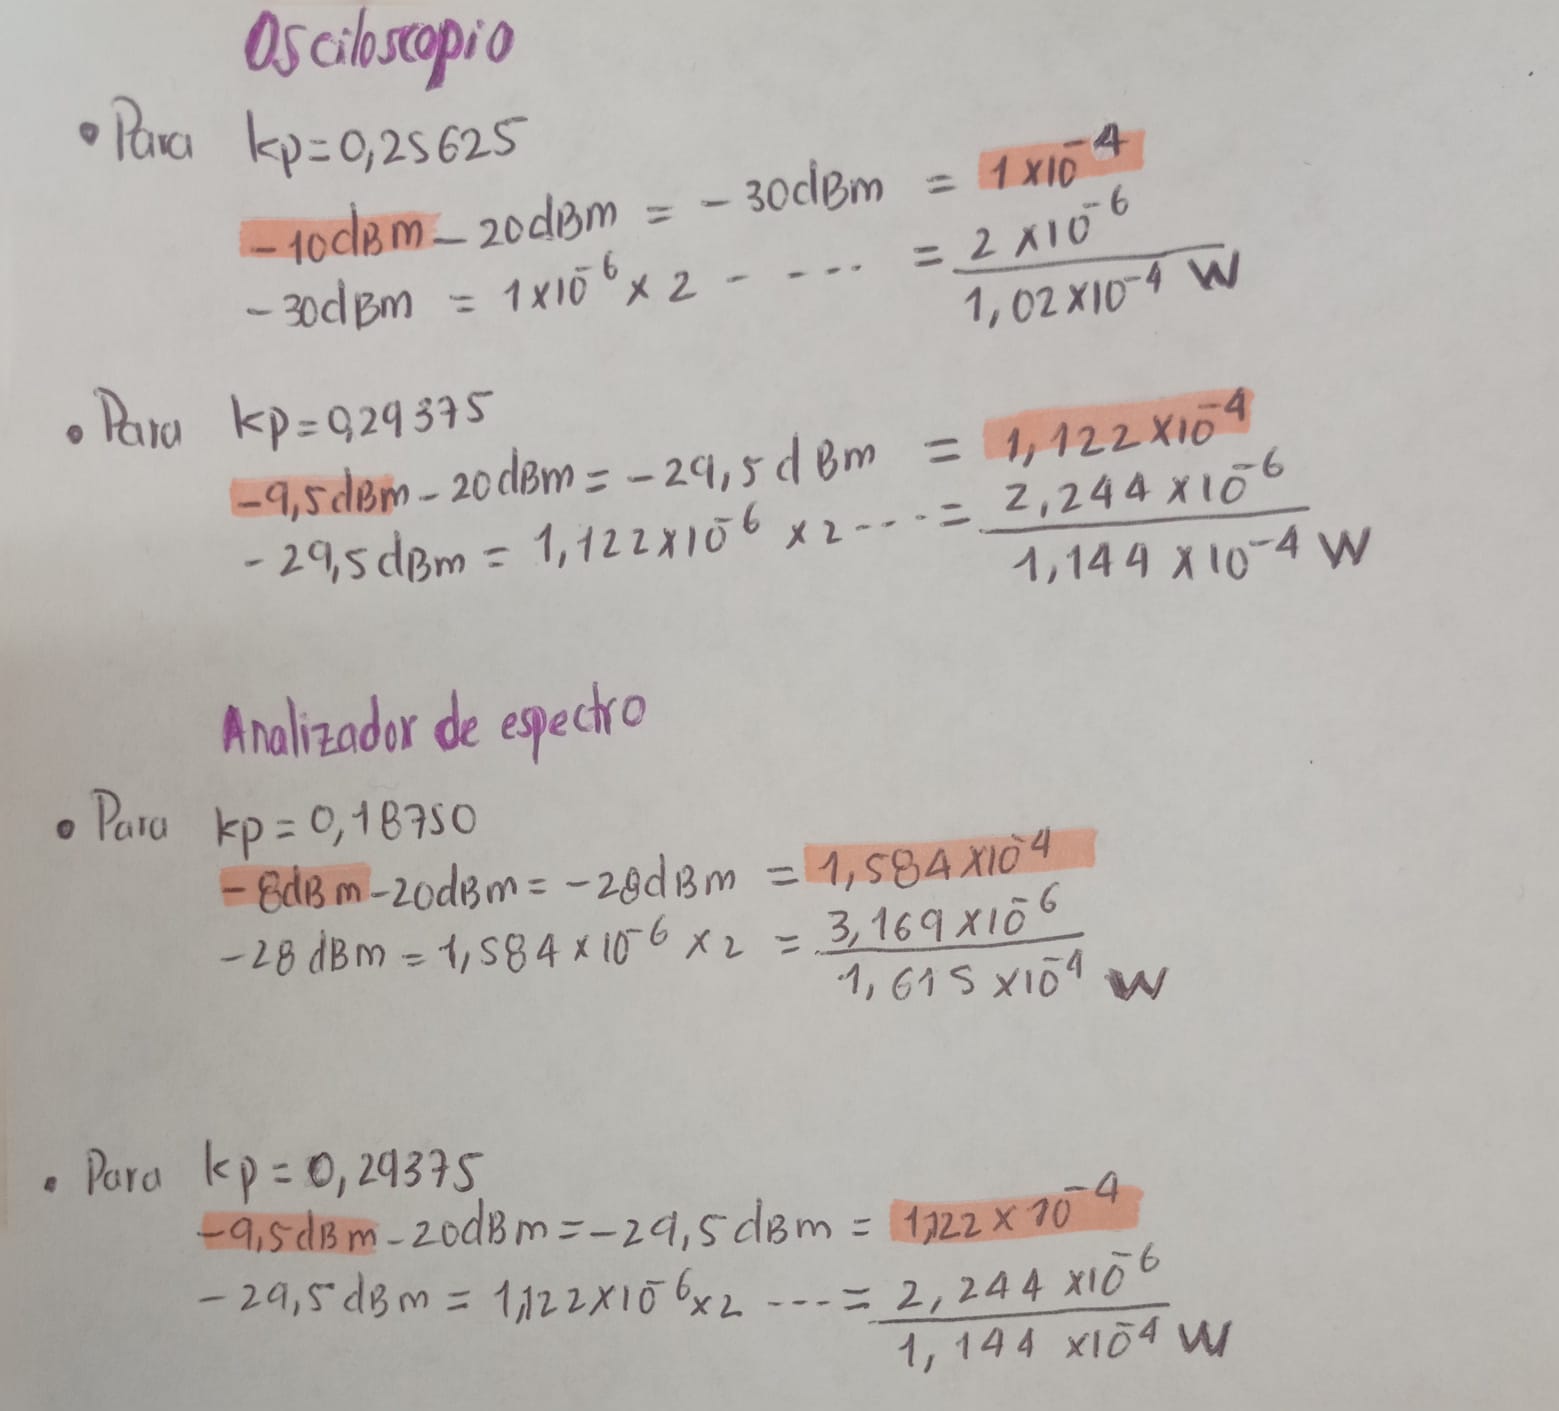 Osciloscopio
• Para kp=0,25625
-10dBm - 20dBm = -30dBm = 1x10^-4
-30dBm = 1x10^-6 x 2 - ---- = 2x10^-6
1,02x10^-4 W
• Para kp=0,29375
-9,5dBm - 20dBm = -29,5dBm = 1,122x10^-4
-29,5dBm = 1,122x10^-6 x 2 ---- = 2,244x10^-6
1,144x10^-4 W
Analizador de espectro
• Para kp=0,18750
-8dBm - 20dBm = -28dBm = 1,584x10^-4
-28dBm = 1,584x10^-6 x 2 = 3,169x10^-6
1,615x10^-4 W
• Para kp=0,29375
-9,5dBm - 20dBm = -29,5dBm = 1,122x10^-4
-29,5dBm = 1,122x10^-6 x 2 ---- = 2,244x10^-6
1,144x10^-4 W